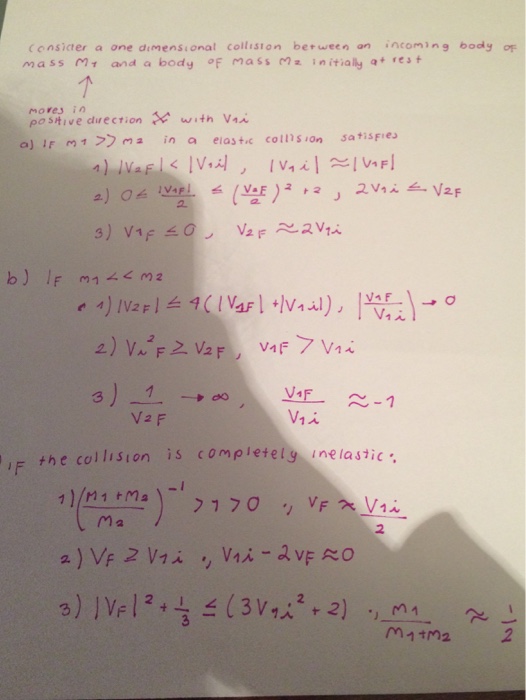 Consider a one dimensional collision between an incoming body of
mass M1 and a body of mass M2 initially at rest
↑
moves in
positive direction x with V1i
a) IF m1 >> m2 in a elastic collision satisfies
1) |V2F| < |V1i| , |V1i| ≈ |V1F|
2) 0 ≤ |V1F|/2 ≤ (V2F/2)² + 2 , 2V1i ≤ V2F
3) V1F ≤ 0 , V2F ≈ 2V1i
b) IF m1 << m2
1) |V2F| ≤ 4(|V1F| + |V1i|) , |V1F/V1i| → 0
2) V1²F ≥ V2F , V1F > V1i
3) 1/V2F → ∞ , V1F/V1i ≈ -1
IF the collision is completely inelastic:
1) ((M1+M2)/M2)⁻¹ > 1 > 0 ., VF ≈ V1i/2
2) VF ≥ V1i ., V1i - 2VF ≈ 0
3) |VF|² + 1/3 ≤ (3V1i² + 2) ., M1/(M1+M2) ≈ 1/2